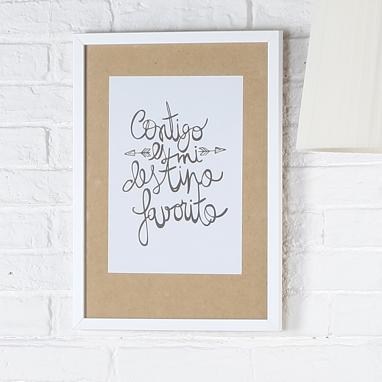 Contigo
es mi
destino
favorito